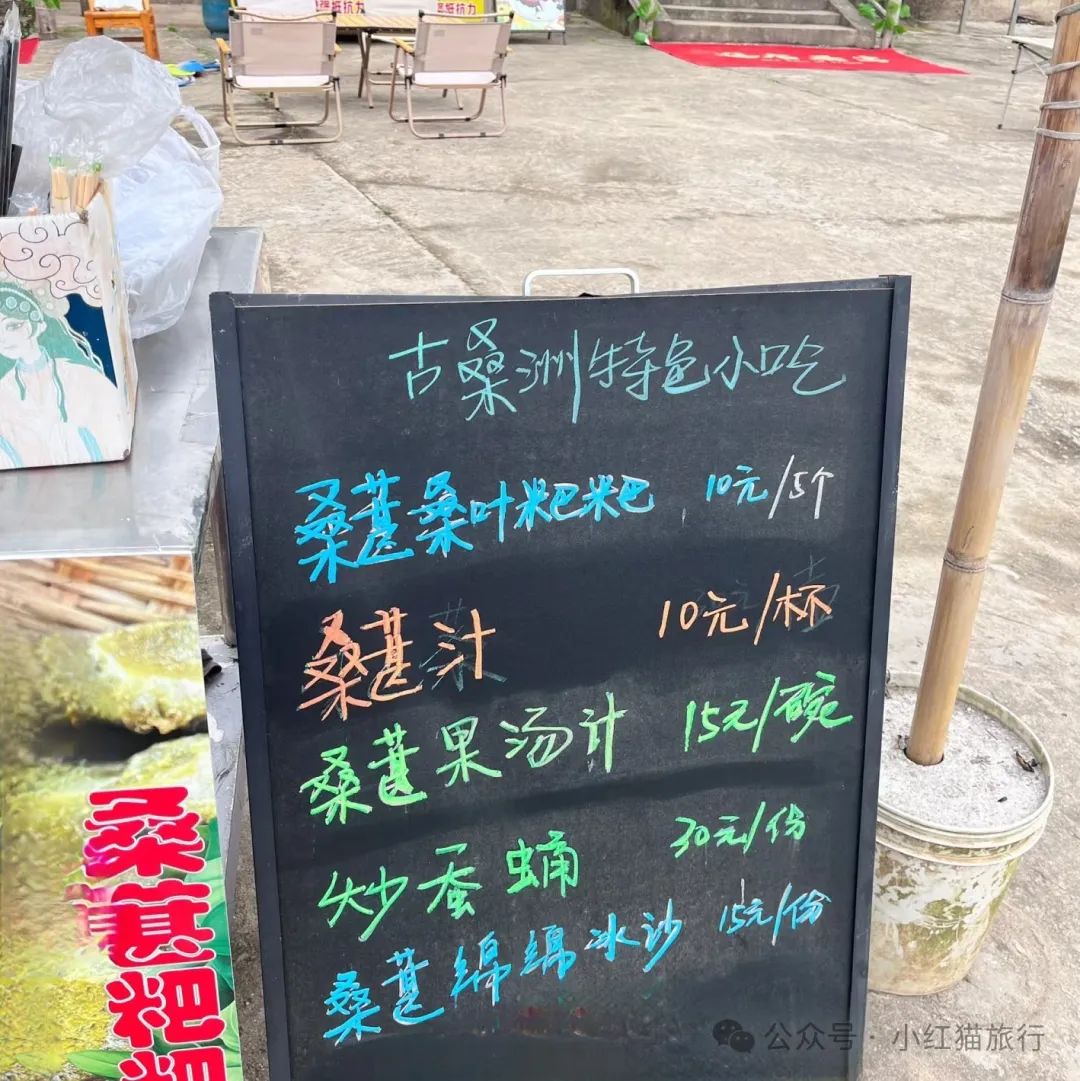 抵抗力
古桑洲特色小吃
桑葚桑叶粑粑 10元/5个
桑葚汁 10元/杯
桑葚果汤汁 15元/碗
炒蚕蛹 30元/份
桑葚绵绵冰沙 15元/份
桑葚粑粑
公众号·小红猫旅行